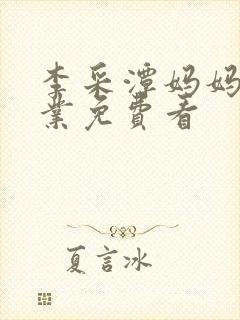 李采潭妈妈
业免费看
夏言冰